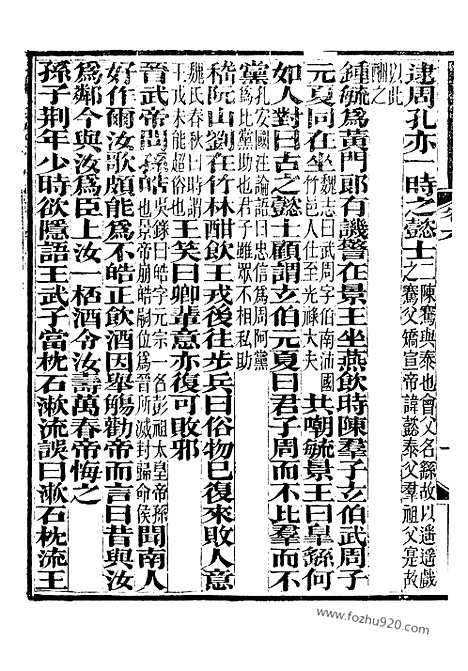 逮周孔亦一時之懿士二陳騫與泰也會父名繇故以遥遥戲之騫父矯宣帝諱懿泰父羣祖父寔故
以此酬之
鍾毓爲黃門郎有機警在景王坐燕飲時陳羣子玄伯武周子
元夏同在坐魏志曰武周字伯南沛國竹邑人仕至光祿大夫共嘲毓景王曰皋繇何
如人對曰古之懿士顧謂玄伯元夏曰君子周而不比羣而不
黨孔安國注論語曰忠信爲周阿黨爲比黨助也君子雖眾不相私助
嵇阮山劉在竹林酣飲王戎後往步兵曰俗物已復來敗人意
魏氏春秋曰時謂王戎未能超俗也王笑曰卿輩意亦復可敗邪
晉武帝問孫皓吳錄曰皓字元宗一名彭祖大皇帝孫也景帝崩皓嗣位爲晉所滅封歸命侯聞南人
好作爾汝歌頗能爲不皓正飲酒因舉觴勸帝而言曰昔與汝
爲鄰今與汝爲臣上汝一桮酒令汝壽萬春帝悔之
孫子荆年少時欲隱語王武子當枕石漱流誤曰漱石枕流王
www.fozhu920.com